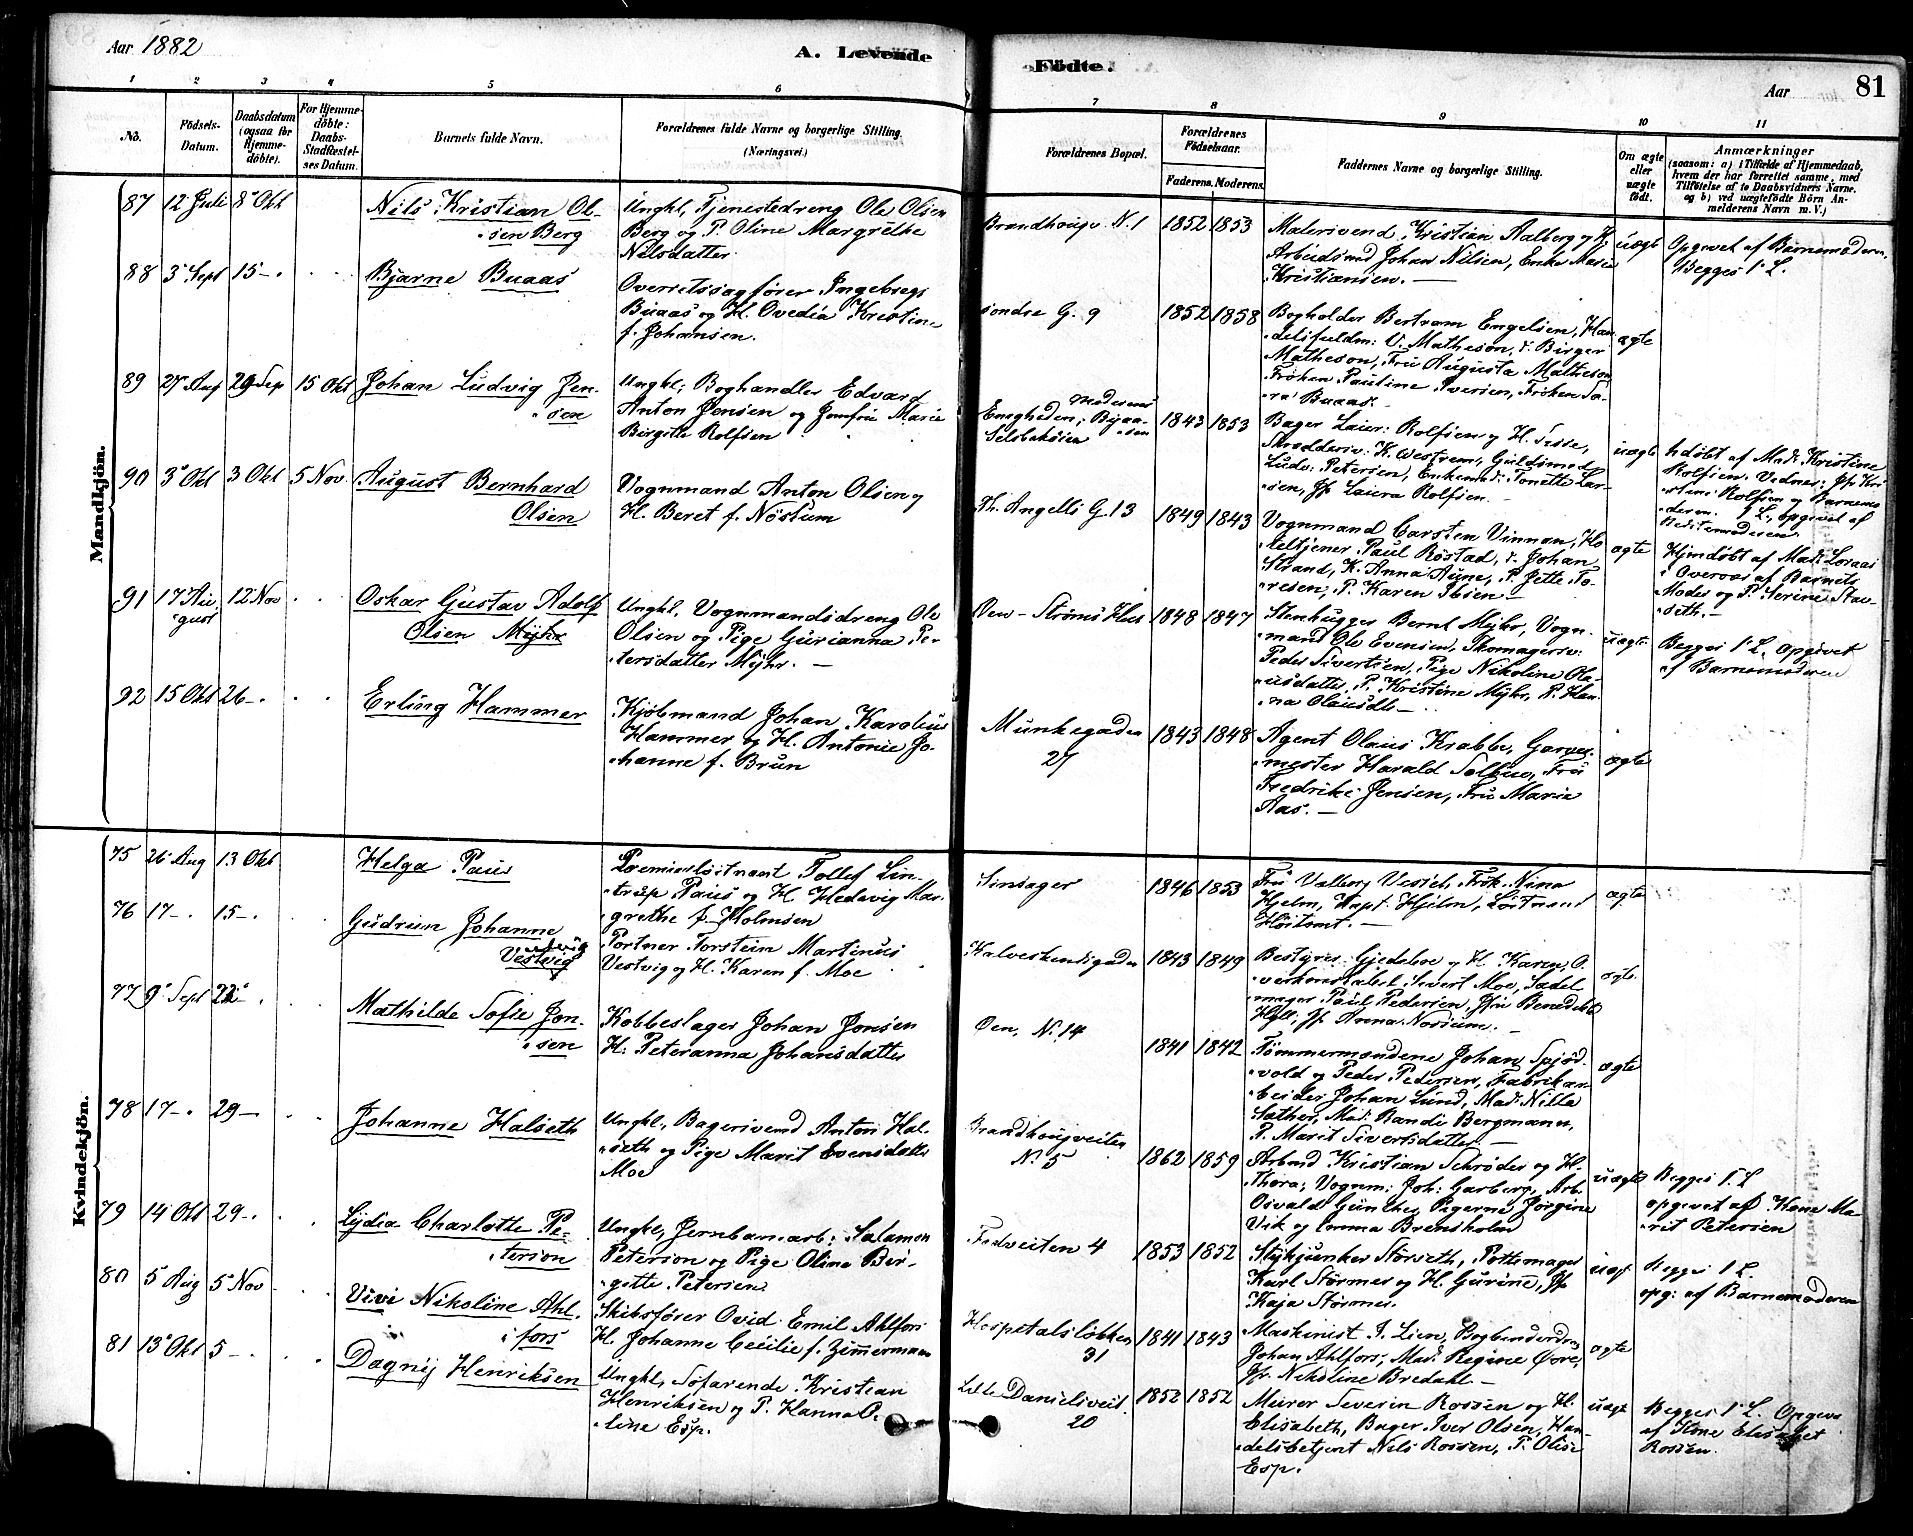 Aar 1882
A. Levende
Födte.
Aar
81
1 2 3 4 5 6 7 8 9 10 11
No.
Födsels-
Datum.
Daabsdatum
(ogsaa for
Hjemme-
döbte).
For Hjemme-
döbte:
Daabs-
Stadfæstel-
ses Datum.
Barnets fulde Navn.
Forældrenes fulde Navne og borgerlige Stilling.
(Næringsvei.)
Forældrenes Bopæl.
Forældrenes
Födselsaar.
Faderens. Moderens.
Faddernes Navne og borgerlige Stilling.
Om ægte
eller
uægte
födt.
Anmærkninger
(saasom: a) i Tilfælde af Hjemmedaab,
hvem der har forrettet samme, med
Tilföielse af to Daabsvidners Navne,
og b) ved uægtefödte Börn An-
melderens Navn m. V.)
Mandkjön.
87 12 Juli 8 Okt
Nils Kristian Ol-
sen Berg
Ungkl. Tjenestedreng Ole Olsen
Berg og P. Oline Margrethe
Nilsdatter
Brandhougv. N. 1
1852 1853
Malersvend Kristian Aalberg og H.
Arbeidsmd Johan Nilsen, Enke Marie
Kristiansen. —
uægte
Opgivet af Barnemoderen.
Begges 1' L.
88 3 Sept 15 -
Bjarne Buaas
Overretssagförer Ingebrigt
Buaas og H. Ovedia Kristine
f. Johansen.
söndre G. 9
1852 1858
Bogholder Bertram Engelsen, Han-
delsfuldm: V. Matheson, & Birger
Matheson, Fru Augusta Matheson
Fröken Pauline Iversen, Fröken Sa-
ra Buaas.
ægte
89 27 Aug 29 Sep 15 Okt
Johan Ludvig Jen-
sen
Ungkl; Boghandler Edvard
Anton Jensen og Jomfru Marie
Birgitte Rolfsen
Enigheden; Moderens
1843 1853
Bager Laur: Rolfsen og H.
Skrædders: K. Westrem, Guldsmed
Ludv: Petersen, Enkemd: Tonette Lar-
sen, Jfr Laura Rolfsen
uægte
Hdöbt af Mad: Kristine
Rolfsen. Vidner: Jfr Kri-
stine Rolfsen og Barnemo-
deren. 1' L., opgivet af
90 3 Okt 3 Okt 5 Nov
August Bernhard
Olsen
Vognmand Anton Olsen og
H. Beret f. Nöstum
Th. Angells G. 13
1849 1843
Vognmand Carsten Vinman, Ho-
teltjener Paul Röstad, & Johan
Strand, K. Anna Aune, P. Jette To-
resen, P. Karen Ibsen —
ægte
Hjmdöbt af Mad:
Overvær af Barnets
Moder og P. Serine Stav-
seth. —
91 17 Au-
gust 12 Nov
Oskar Gustav Adolf
Olsen Myhr
Ungkl. Vognmandsdreng Ole
Olsen og Pige Gurianna Pe-
tersdatter Myhr. —
Öen - Ströms Hus
1848 1847
Stenhugger Bernt Myhr, Vogn-
mand Ole Evensen, Skomagersv:
Peder Sivertsen, Pige Nikoline Ola-
usdatter, P. Kristine Myhr, P. Han-
na Olausdtr —
uægte
Begges 1' L. Opgivet
af Barnemoderen
92 15 Okt 26 -
Erling Hammer
Kjöbmand Johan Karolius
Hammer og H. Antonie Jo-
hanne f. Brun
Munkegaden
27
1843 1848
Agent Olaus Krabbe, Garver-
mester Harald Solbu, Fru
Fredrikke Jensen, Fru Maria
Aas. —
ægte
Kvindekjön.
75 26 Aug 13 Okt
Helga Paus
Premierlöitnant Tollef Lin-
trup Paus og H. Hedevig Mar-
grethe f. Holmsen
Sinsager
1846 1853
Fru Valborg Frk. Nina
Hjelm, Kapt. Hjelm, Löitnant
Höitomt. —
ægte
76 17 - 15 -
Gudrun Johanne
Vestvig
Portner Torstein Martinus
Vestvig og H. Karen f. Moe
Kalveskindsgaden
1843 1849
Bestyrer Gjedeboe og H. Karen, O-
verkonstabel Sivert Moe, Sadel-
mager Paul Pedersen, Jfr Benedikte
Jfr Anna Norsum. —
ægte
77 9 Sept 22 -
Mathilde Sofie Jon-
sen
Kobbeslager Johan Jonsen
H: Peteranna Johansdatter
Öen, N. 14
1841 1842
Tömmermændene Johan Spjöd-
vold og Peder Pedersen, Fabrikar-
beider Johan Lund, Mad: Nilla
Sæther, Mad: Randi Bergmann,
P. Marit Sivertsdatter. —
ægte
78 17 - 29 -
Johanne Halseth
Ungkl, Bagersvend Anton Hal-
seth og Pige Marit Evensdatter
Moe
Brandhougveiten
N. 5
1862 1859
Arbmd Kristian Schröder og H.
Thora; Vognm: Joh: Garberg, Arb.
Osvald Günther, Pigerne Jörgine
Vik og Emma Brensholm
uægte
Begges 1' L
opgivet af Kone Ma-
rit Petersen
79 14 Okt 29 -
Lydia Charlotte Pe-
terson
Ungkl, Jernbanearb: Salamon
Peterson og Pige Oline Ber-
gitte Petersen
Fedveiten 4
1853 1852
Stykjunker Störseth, Pottemager
Karl Störmer og H. Gurine, Jfr
Kaja Störmer.
uægt
Begges 1' L.
opg: af Barnemoderen
80 5 Aug 5 Nov
Vivi Nikoline Ahl-
fors
Skibsförer Ovid Emil Ahlfors
H. Johanne Cecilie f. Zimmermann
Hospitalslökken
31
1841 1843
Maskinist J. Lien, Bogbinderdreng
Johan Ahlfors, Mad: Regine Övre,
Jfr. Nikoline Bredahl —
ægte
81 13 Okt 5 -
Dagny Henriksen
Ungkl, Söfarende Kristian
Henriksen og P. Hanna O-
line Esp.
Lille Danielsveit.
20
1852 1852
Murer Severin Rossen og H.
Elisabeth, Bager Iver Olsen, Han-
delsbetjent Nils Rossen, P. Olise
Esp.
uægt
Begges 1' L. Opgivet
af Kone Elisabet
Rossen.